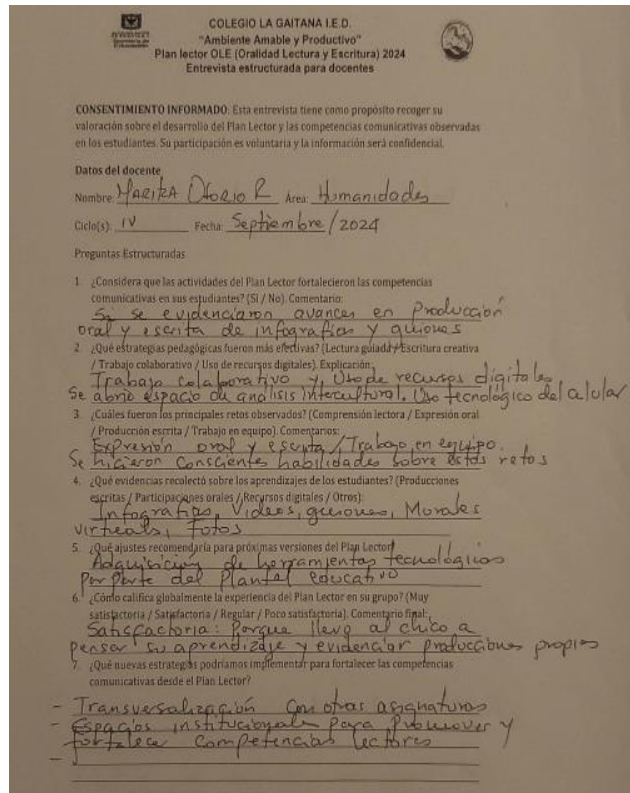 COLEGIO LA GAITANA I.E.D.
"Ambiente Amable y Productivo"
Plan lector OLE (Oralidad Lectura y Escritura) 2024
Entrevista estructurada para docentes
CONSENTIMIENTO INFORMADO: Esta entrevista tiene como propósito recoger su
valoración sobre el desarrollo del Plan Lector y las competencias comunicativas observadas
en los estudiantes. Su participación es voluntaria y la información será confidencial.
Datos del docente
Nombre: MARITZA OSORIO R Área: Humanidades
Ciclo(s): IV Fecha: Septiembre / 2024
Preguntas Estructuradas
1. ¿Considera que las actividades del Plan Lector fortalecieron las competencias
comunicativas en sus estudiantes? (Sí / No). Comentario:
Si se evidenciaron avances en Producción
oral y escrita de infografías y guiones
2. ¿Qué estrategias pedagógicas fueron más efectivas? (Lectura guiada / Escritura creativa
/ Trabajo colaborativo / Uso de recursos digitales). Explicación:
Trabajo colaborativo y Uso de recursos digitales
Se abrió espacio de análisis intercultural. Uso tecnológico del celular
3. ¿Cuáles fueron los principales retos observados? (Comprensión lectora / Expresión oral
/ Producción escrita / Trabajo en equipo). Comentarios:
Expresión oral y escrita / Trabajo en equipo.
Se hicieron conscientes habilidades sobre estos retos
4. ¿Qué evidencias recolectó sobre los aprendizajes de los estudiantes? (Producciones
escritas / Participaciones orales / Recursos digitales / Otros):
Infografías, Videos, guiones, Morales
virtuals, Fotos
5. ¿Qué ajustes recomendaría para próximas versiones del Plan Lector?
Adquisición de herramientas tecnológicas
por parte del Plantel educativo
6. ¿Cómo califica globalmente la experiencia del Plan Lector en su grupo? (Muy
satisfactoria / Satisfactoria / Regular / Poco satisfactoria). Comentario final:
Satisfactoria: Porque llevo al chico a
pensar su aprendizaje y evidenciar producciones propias
7. ¿Qué nuevas estrategias podríamos implementar para fortalecer las competencias
comunicativas desde el Plan Lector?
- Transversalización con otras asignaturas
- Espacios institucionales para Promover y
fortalecer competencias lectores
-